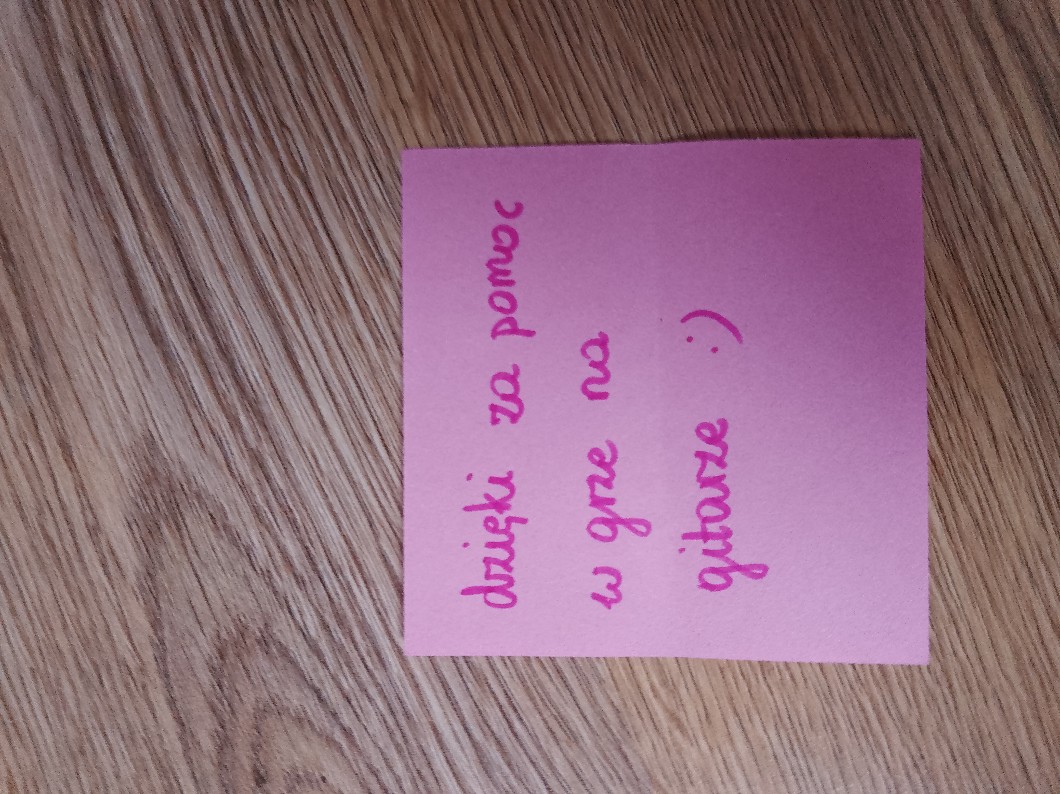 dzięki za pomoc
w grze na
gitarze :)